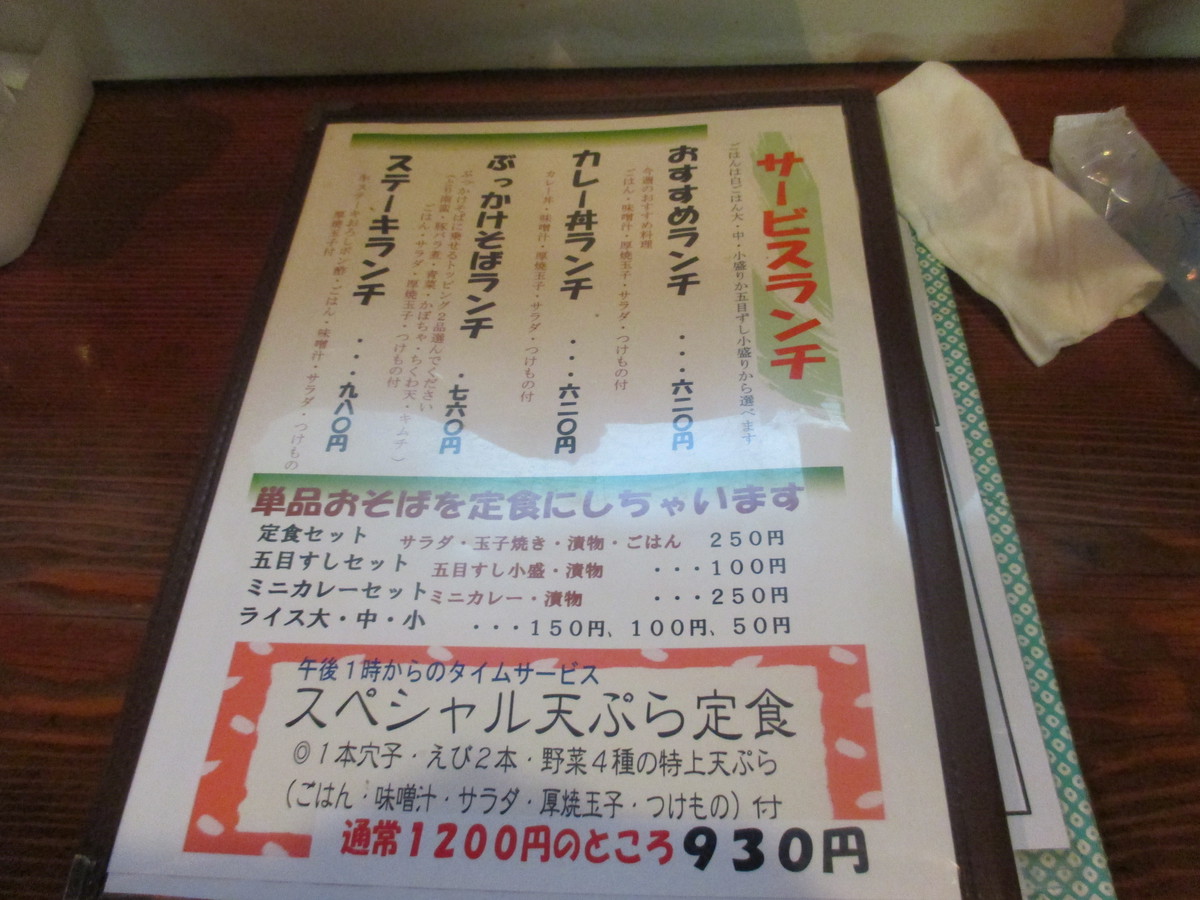 サービスランチ
ごはんは白ごはん大・中・小盛りか五目ずし小盛りから選べます
おすすめランチ ・・・六二〇円
今週のおすすめ料理
ごはん・味噌汁・厚焼玉子・サラダ・つけもの付
カレー丼ランチ ・・・六二〇円
カレー丼・味噌汁・厚焼玉子・サラダ・つけもの付
ぶっかけそばランチ ・七六〇円
ぶっかけそばに乗せるトッピング2品選んでください
豚バラ煮・青菜・かぼちゃ・ちくわ天・キムチ）
ごはん・サラダ・厚焼玉子・つけもの付
ステーキランチ ・・・九八〇円
牛ステーキおろしポン酢・ごはん・味噌汁・サラダ・つけもの
厚焼玉子付
単品おそばを定食にしちゃいます
定食セット サラダ・玉子焼き・漬物・ごはん 250円
五目すしセット 五目すし小盛・漬物 ・・・100円
ミニカレーセット ミニカレー・漬物 ・・・250円
ライス大・中・小 ・・・150円、100円、50円
午後1時からのタイムサービス
スペシャル天ぷら定食
◎1本穴子・えび2本・野菜4種の特上天ぷら
（ごはん・味噌汁・サラダ・厚焼玉子・つけもの）付
通常1200円のところ930円